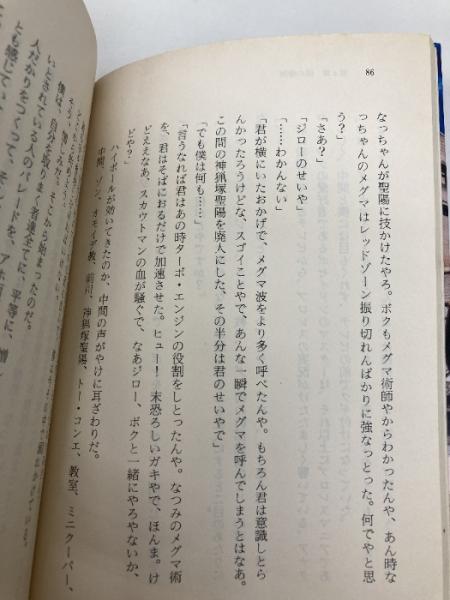 86
なっちゃんが聖陽に技かけたやろ。ボクもメグマ術師やからわかったんや、あん時な
っちゃんのメグマはレッドゾーン振り切れんばかりに強なっとった。何でやと思
う?」
「さあ?」
「ジローのせいや」
「……わかんない」
「君が横にいたおかげで、メグマ波をより多く呼べたんや。もちろん君は意識しとら
んかったろうけどな、スゴイことやで、あんな一瞬でメグマを呼んでしまうとはなあ。
この間の神猟塚聖陽を廃人にした、その半分は君のせいやで」
「でも僕は何も……」
「言うなれば君はあの時ターボ・エンジンの役割をしとったんや。なつみのメグマ術
を、君はそばにおるだけで加速させた。ヒュー! 末恐ろしいガキやで、ほんま。け
どええなあ、スカウトマンの血が騒ぐで、なあジロー、ボクと一緒にやろやないか、
どや?」
ハイボールが効いてきたのか、中間の声がやけに耳ざわりだ。
中間、ゾン、オモイデ教、前川、神猟塚聖陽、トー・コンエ、教室、ミニクーパー、
いとされている人のレ
人だかりをつくって、そん
とも感じて
僕は、自分を取りま
者達全てに、平等に、憎
そこから始まったのだ。